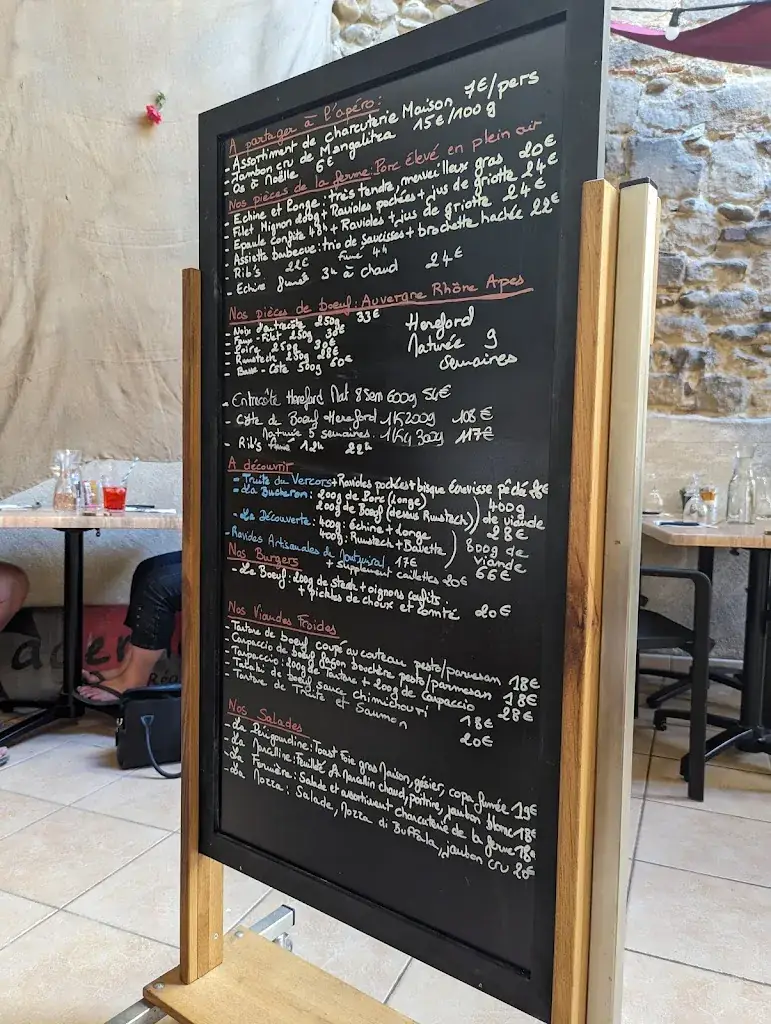 A partager à l'apéro:
- Assortiment de charcuterie Maison 7€/pers
- Jambon cru de Mangalitza 15€/100g
- Os à Moëlle 6€
Nos pièces de la ferme: Porc élevé en plein air
- Echine et Longe: très tendre, merveilleux gras 20€
- Filet Mignon 200g + Ravioles pochées + jus de griotte 24€
- Epaule confite 48h + Ravioles + jus de griotte 24€
- Assiette barbecue: trio de saucisses + brochette hachée 22€
- Rib's 22€ Fumé 4h
- Echine fumée 3h à chaud 24€
Nos pièces de boeuf: Auvergne Rhône Apes
- Noix d'entrecôte 250g 33€
- Faux-Filet 250g 32€
- Poire 250g 30€
- Rumsteck 250g 28€
- Basse-Côte 500g 60€
Hereford
Maturée 9
semaines
- Entrecôte Hereford Mat 8 Sem 600g 54€
- Côte de Boeuf Hereford 1K200g 108€
Maturée 5 semaines. 1K300g 117€
- Rib's Fumé 12h 22€
A découvrir
- Truite du Vercors + Ravioles pochées + bisque écrevisse
- La Bucheron: 200g de Porc (Longe)
200g de Boeuf (dessus Rumsteck) 400g de viande 28€
- La Découverte: 400g: Echine + Longe
400g: Rumsteck + Bavette 800g de viande 56€
- Ravioles Artisanales de 17€
+ supplément caillettes 20€
Nos Burgers
- Le Boeuf: 200g de steak + oignons confits
+ pickles de choux et comté 20€
Nos Viandes Froides
- Tartare de boeuf coupé au couteau pesto/parmesan 18€
- Carpaccio de boeuf façon bouchère pesto/parmesan 18€
- Tarpaccio: 200g de Tartare + 200g de Carpaccio 28€
- Tataki de boeuf sauce chimichuri 18€
- Tartare de Truite et Saumon 20€
Nos Salades
- La Périgourdine: Toast Foie gras Maison, gésier, copa fumée 19€
- La Marcelline: Feuilleté St Marcellin chaud, poitrine, jambon blanc 18€
- La Fermière: Salade et assortiment charcuterie de la ferme 18€
- La Mozza: Salade, Mozza di Buffala, jambon cru 20€